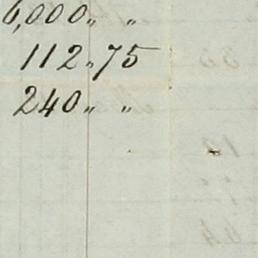 6,000 〃 〃
112 〃 75
240 〃 〃